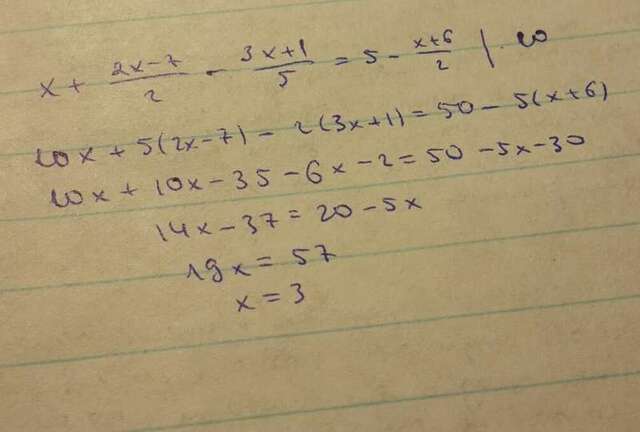 x + \frac{2x-7}{2} - \frac{3x+1}{5} = 5 - \frac{x+6}{2} | · 10
10x + 5(2x-7) - 2(3x+1) = 50 - 5(x+6)
10x + 10x - 35 - 6x - 2 = 50 - 5x - 30
14x - 37 = 20 - 5x
19x = 57
x = 3